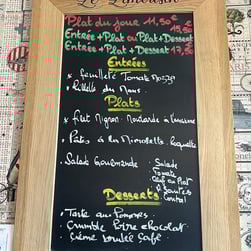 Le Limousin
Plat du jour 11,50€
Entrée+Plat ou Plat+Dessert 15,50
Entrée+Plat+Dessert 17,50
Entrées
* feuilleté Tomate Mozza
* Rillette du Mans
Plats
* filet Mignon Moutarde à l'ancienne
* Pâtes à la Mimolette, Roquette
* Salade Gourmande : Salade
Tomate
Cantal
Desserts
* Tarte aux Pommes
* Crumble Poire chocolat
* Crème brulée Café